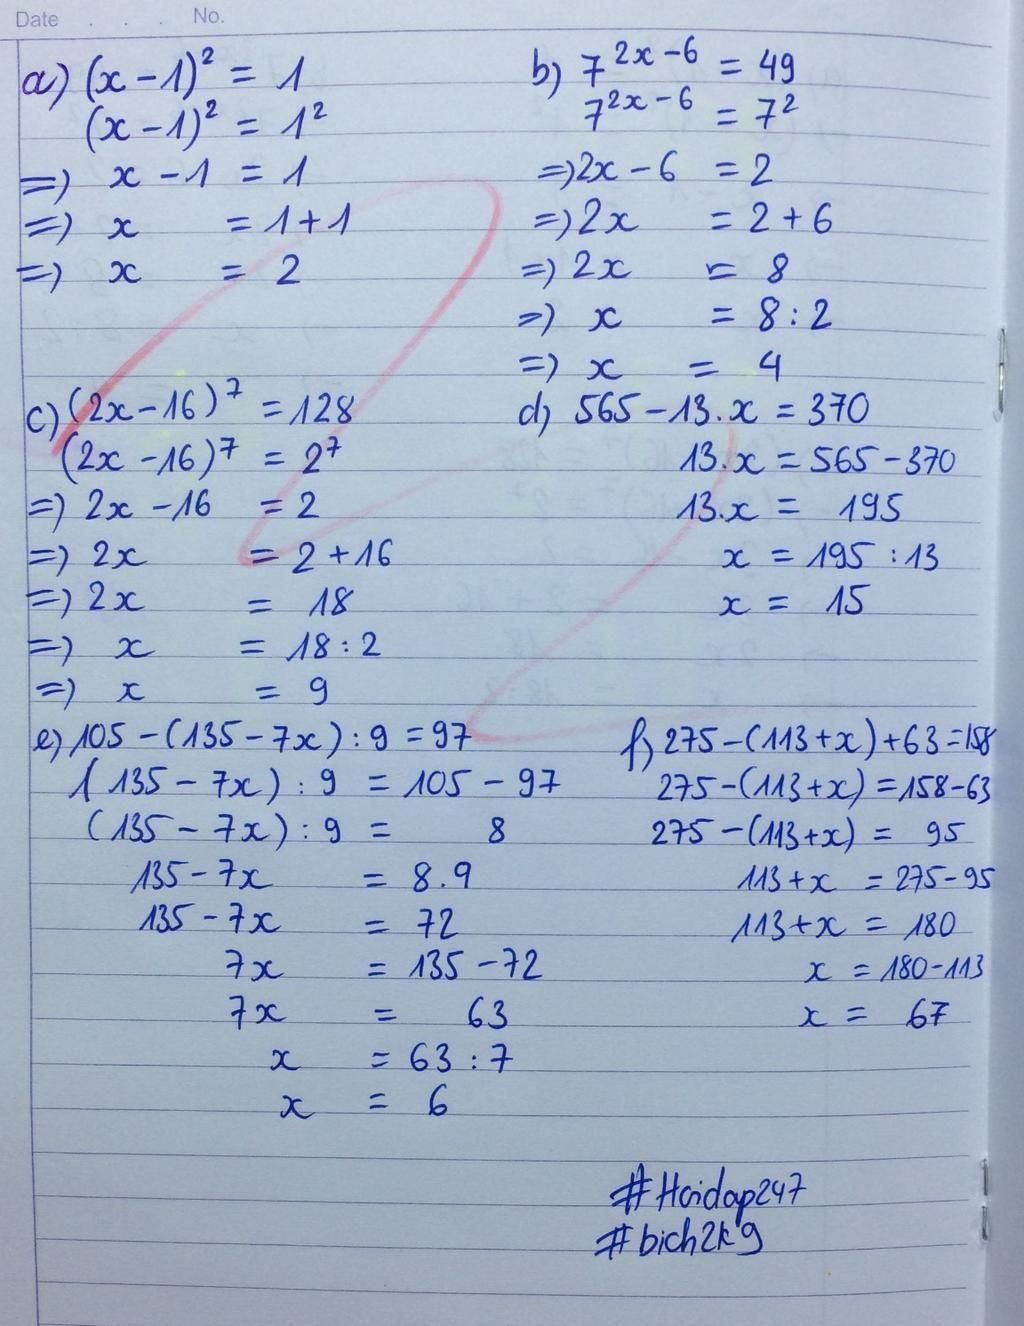 Date . . . No.
a) (x - 1)² = 1
(x - 1)² = 1²
=> x - 1 = 1
=> x = 1 + 1
=> x = 2
b) 7^(2x - 6) = 49
7^(2x - 6) = 7²
=> 2x - 6 = 2
=> 2x = 2 + 6
=> 2x = 8
=> x = 8 : 2
=> x = 4
c) (2x - 16)⁷ = 128
(2x - 16)⁷ = 2⁷
=> 2x - 16 = 2
=> 2x = 2 + 16
=> 2x = 18
=> x = 18 : 2
=> x = 9
d) 565 - 13 . x = 370
13 . x = 565 - 370
13 . x = 195
x = 195 : 13
x = 15
e) 105 - (135 - 7x) : 9 = 97
(135 - 7x) : 9 = 105 - 97
(135 - 7x) : 9 = 8
135 - 7x = 8 . 9
135 - 7x = 72
7x = 135 - 72
7x = 63
x = 63 : 7
x = 6
f) 275 - (113 + x) + 63 = 158
275 - (113 + x) = 158 - 63
275 - (113 + x) = 95
113 + x = 275 - 95
113 + x = 180
x = 180 - 113
x = 67
#Hoidap247
#bich2k9